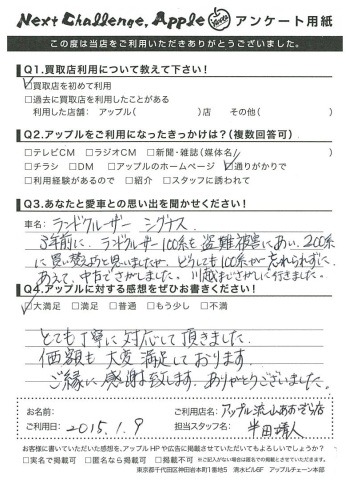 Next Challenge, Apple アンケート用紙
この度は当店をご利用いただきありがとうございました。
Q1.買取店利用について教えて下さい!
☑買取店を初めて利用
□過去に買取店を利用したことがある
利用した店舗: アップル( )店 その他( )
Q2.アップルをご利用になったきっかけは?(複数回答可)
□テレビCM □ラジオCM □新聞・雑誌(媒体名 )
□チラシ □DM □アップルのホームページ ☑通りがかりで
□利用経験があるので □紹介 □スタッフに誘われて
Q3.あなたと愛車との思い出を聞かせください!
車名: ランドクルーザー シグナス
3年前に、ランドクルーザー100系を盗難被害にあい、200系
に買い替えようと思いましたが、どうしても100系が忘れられずに、
あえて、中古でさがしました。川越までさがしに行きました。
Q4.アップルに対する感想をぜひお書きください!
☑大満足 □満足 □普通 □もう少し □不満
とても丁寧に対応して頂きました。
価額も大変満足しております。
ご縁に感謝致します。ありがとうございました。
お名前: ご利用店名: アップル流山おおぞら店
ご利用日: 2015.1.9 担当スタッフ名: 半田
お客様に書いていただいた感想を、アップルHPや広告に掲載させていただいてもよろしいでしょうか?
□実名で掲載可 □匿名なら掲載可 □掲載不可 ※ご記入がない場合は匿名での掲載とさせていただきます。
東京都千代田区神田岩本町1番地5 清水ビル6F アップルチェーン本部